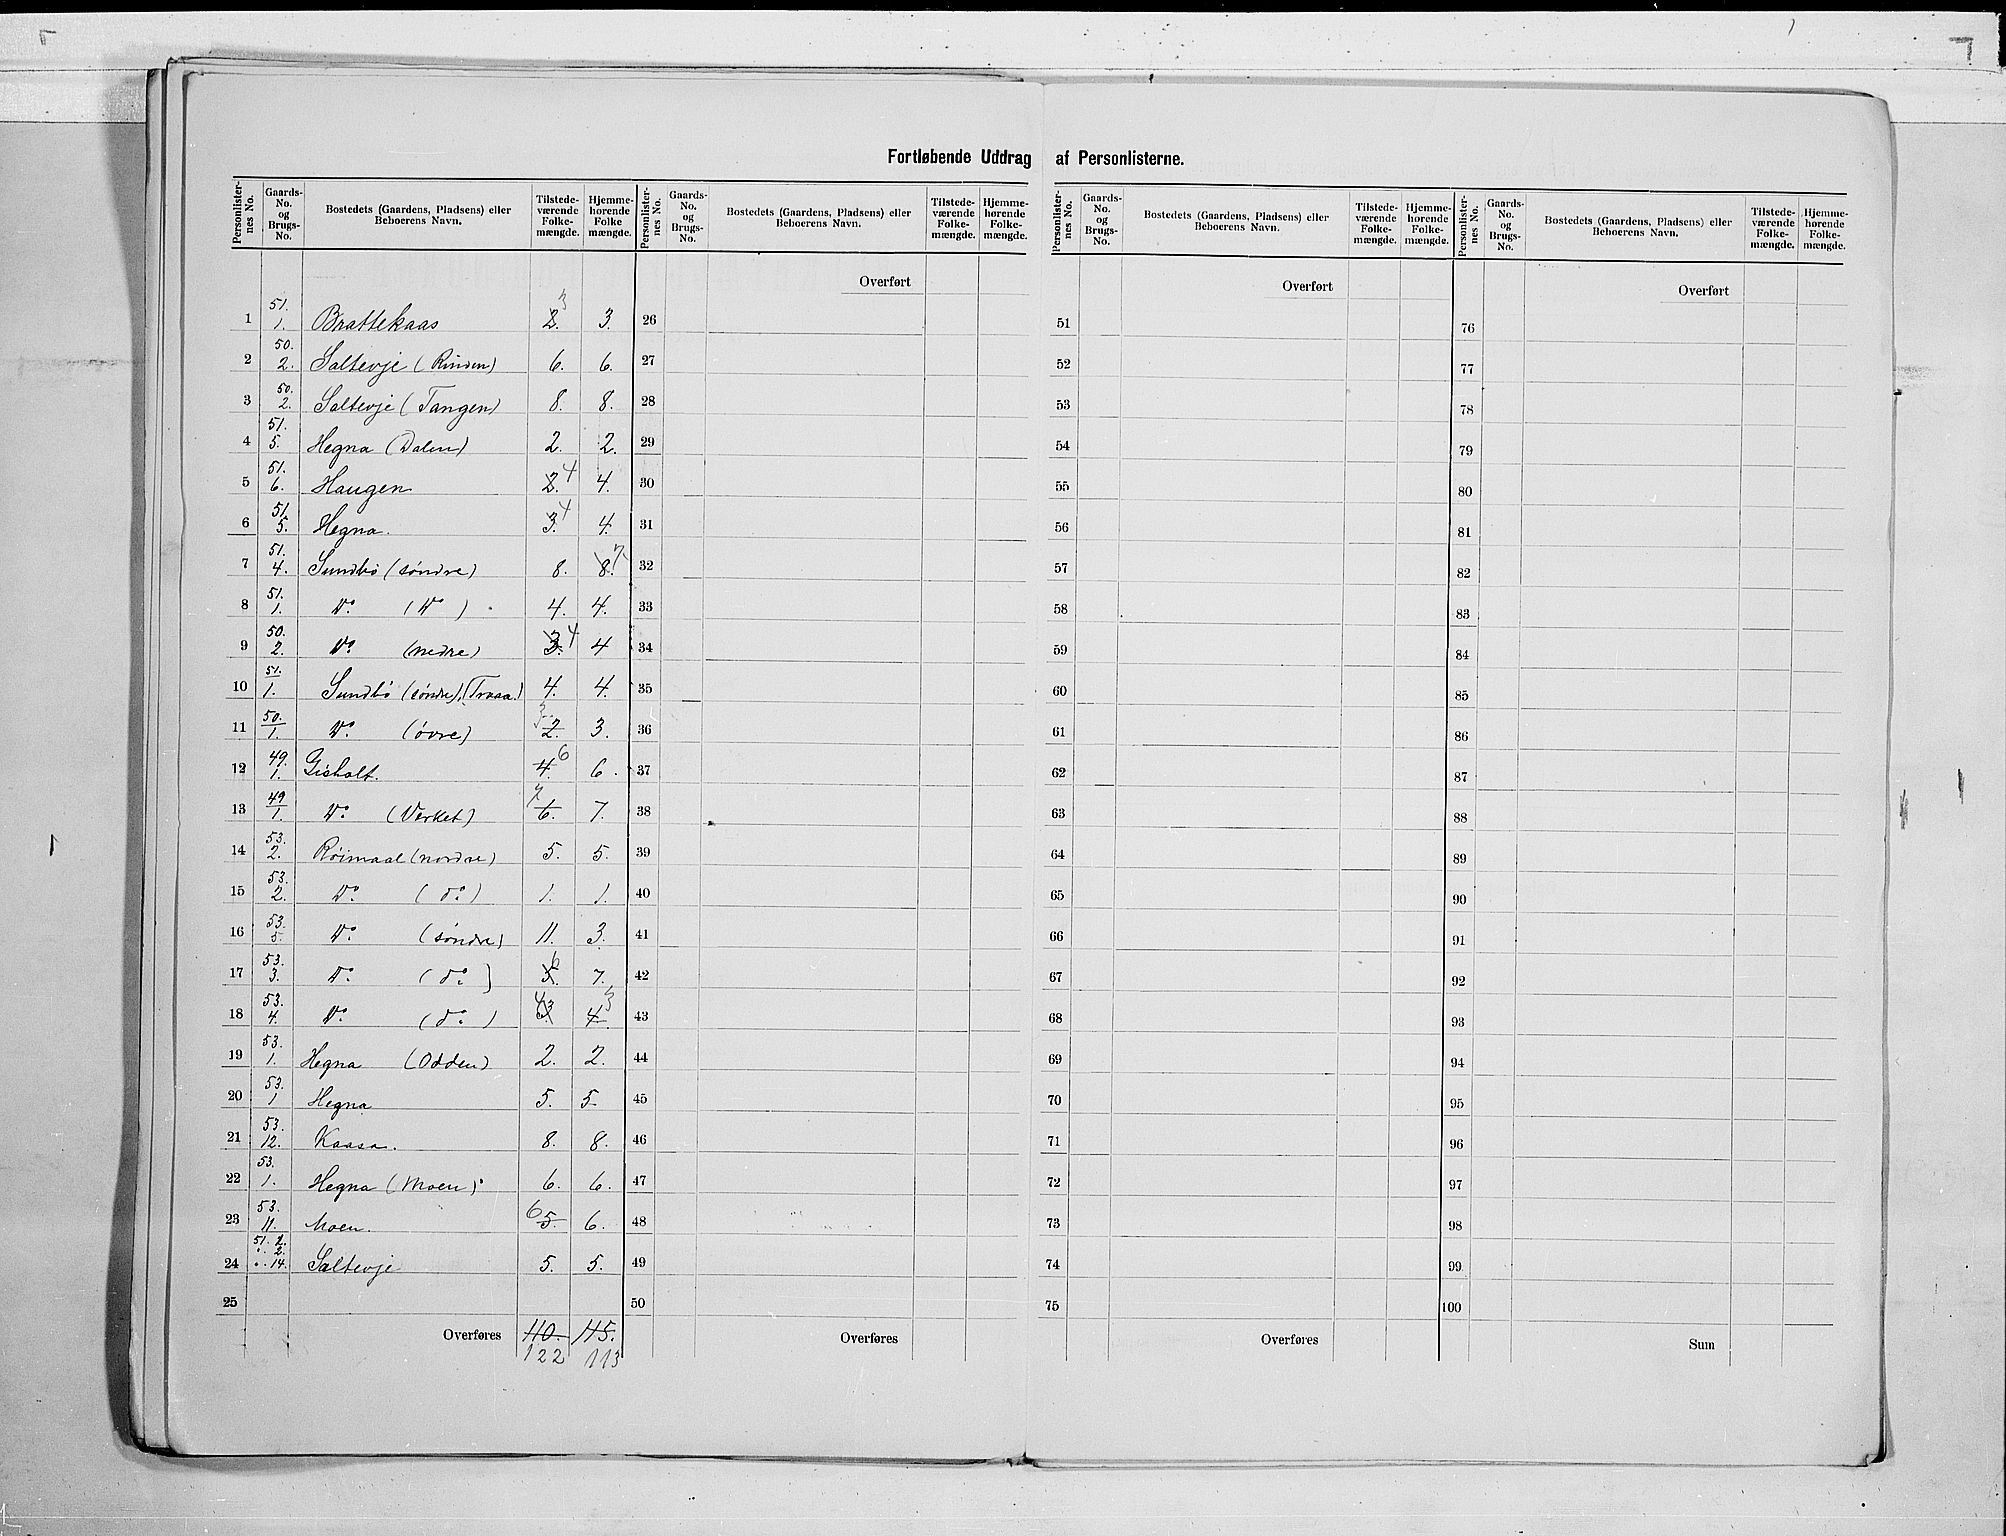 Fortløbende Uddrag af Personlisterne.
Personlister-nes No. Gaards-No. og Brugs-No. Bostedets (Gaardens, Pladsens) eller Beboerens Navn. Tilstede-værende Folke-mængde. Hjemme-hørende Folke mængde.
Personlister-nes No. Gaards-No. og Brugs-No. Bostedets (Gaardens, Pladsens) eller Beboerens Navn. Tilstede-værende Folke-mængde. Hjemme-hørende Folke-mængde.
Personlister-nes No. Gaards-No. og Brugs-No. Bostedets (Gaardens, Pladsens) eller Beboerens Navn. Tilstede-værende Folke-mængde. Hjemme-hørende Folke-mængde.
Personlister-nes No. Gaards-No. og Brugs-No. Bostedets (Gaardens, Pladsens) eller Beboerens Navn. Tilstede-værende Folke-mængde. Hjemme-hørende Folke-mængde.
Overført Overført Overført
1 51. 1. Brattekaas 2. 3 3. 26 51 76
2 50. 2. Saltevje (Rinden) 6. 6. 27 52 77
3 50. 2. Saltevje (Tangen) 8. 8. 28 53 78
4 51. 5. Hegna (Dalen) 2. 2. 29 54 79
5 51. 6. Haugen 2. 4 4. 30 55 80
6 51. 5. Hegna. 3. 4 4. 31 56 81
7 51. 4. Sundbö (söndre) 8. 8. 7. 32 57 82
8 51. 1. Do. (Do) 4. 4. 33 58 83
9 50. 2. Do. (nedre) 3. 4 4 34 59 84
10 51. 1. Sundbö (söndre), (Traaa.) 4. 4. 35 60 85
11 50. 1. Do. (övre) 3 2. 3. 36 61 86
12 49. 1. Gisholt. 4. 6 6. 37 62 87
13 49 1. Do. (Verket) 7 6. 7. 38 63 88
14 53. 2. Röimaal (nordre) 5. 5. 39 64 89
15 53. 2. Do. (do.) 1. 1. 40 65 90
16 53. 5. Do. (söndre) 11. 3. 41 66 91
17 53. 3. Do. (do.) 5. 6 7. 42 67 92
18 53. 4. Do. (do.) 4 3. 4. 3 43 68 93
19 53. 1. Hegna (Odden) 2. 2. 44 69 94
20 53. 1 Hegna 5. 5. 45 70 95
21 53. 12. Kaasa. 8. 8. 46 71 96
22 53. 1. Hegna (Moen) 6. 6. 47 72 97
23 53. 11. Moen. 6 5. 6. 48 73 98
24 51. 2. " 2. " 14. Saltevje 5. 5. 49 74 99
25 50 75 100
Overføres 110. 115. Overføres Overføres Sum
122 113